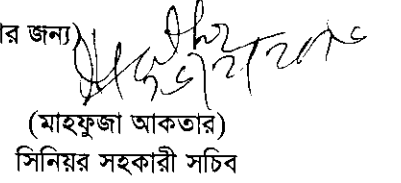 র জন্য)
(মাহফুজা আকতার)
সিনিয়র সহকারী সচিব